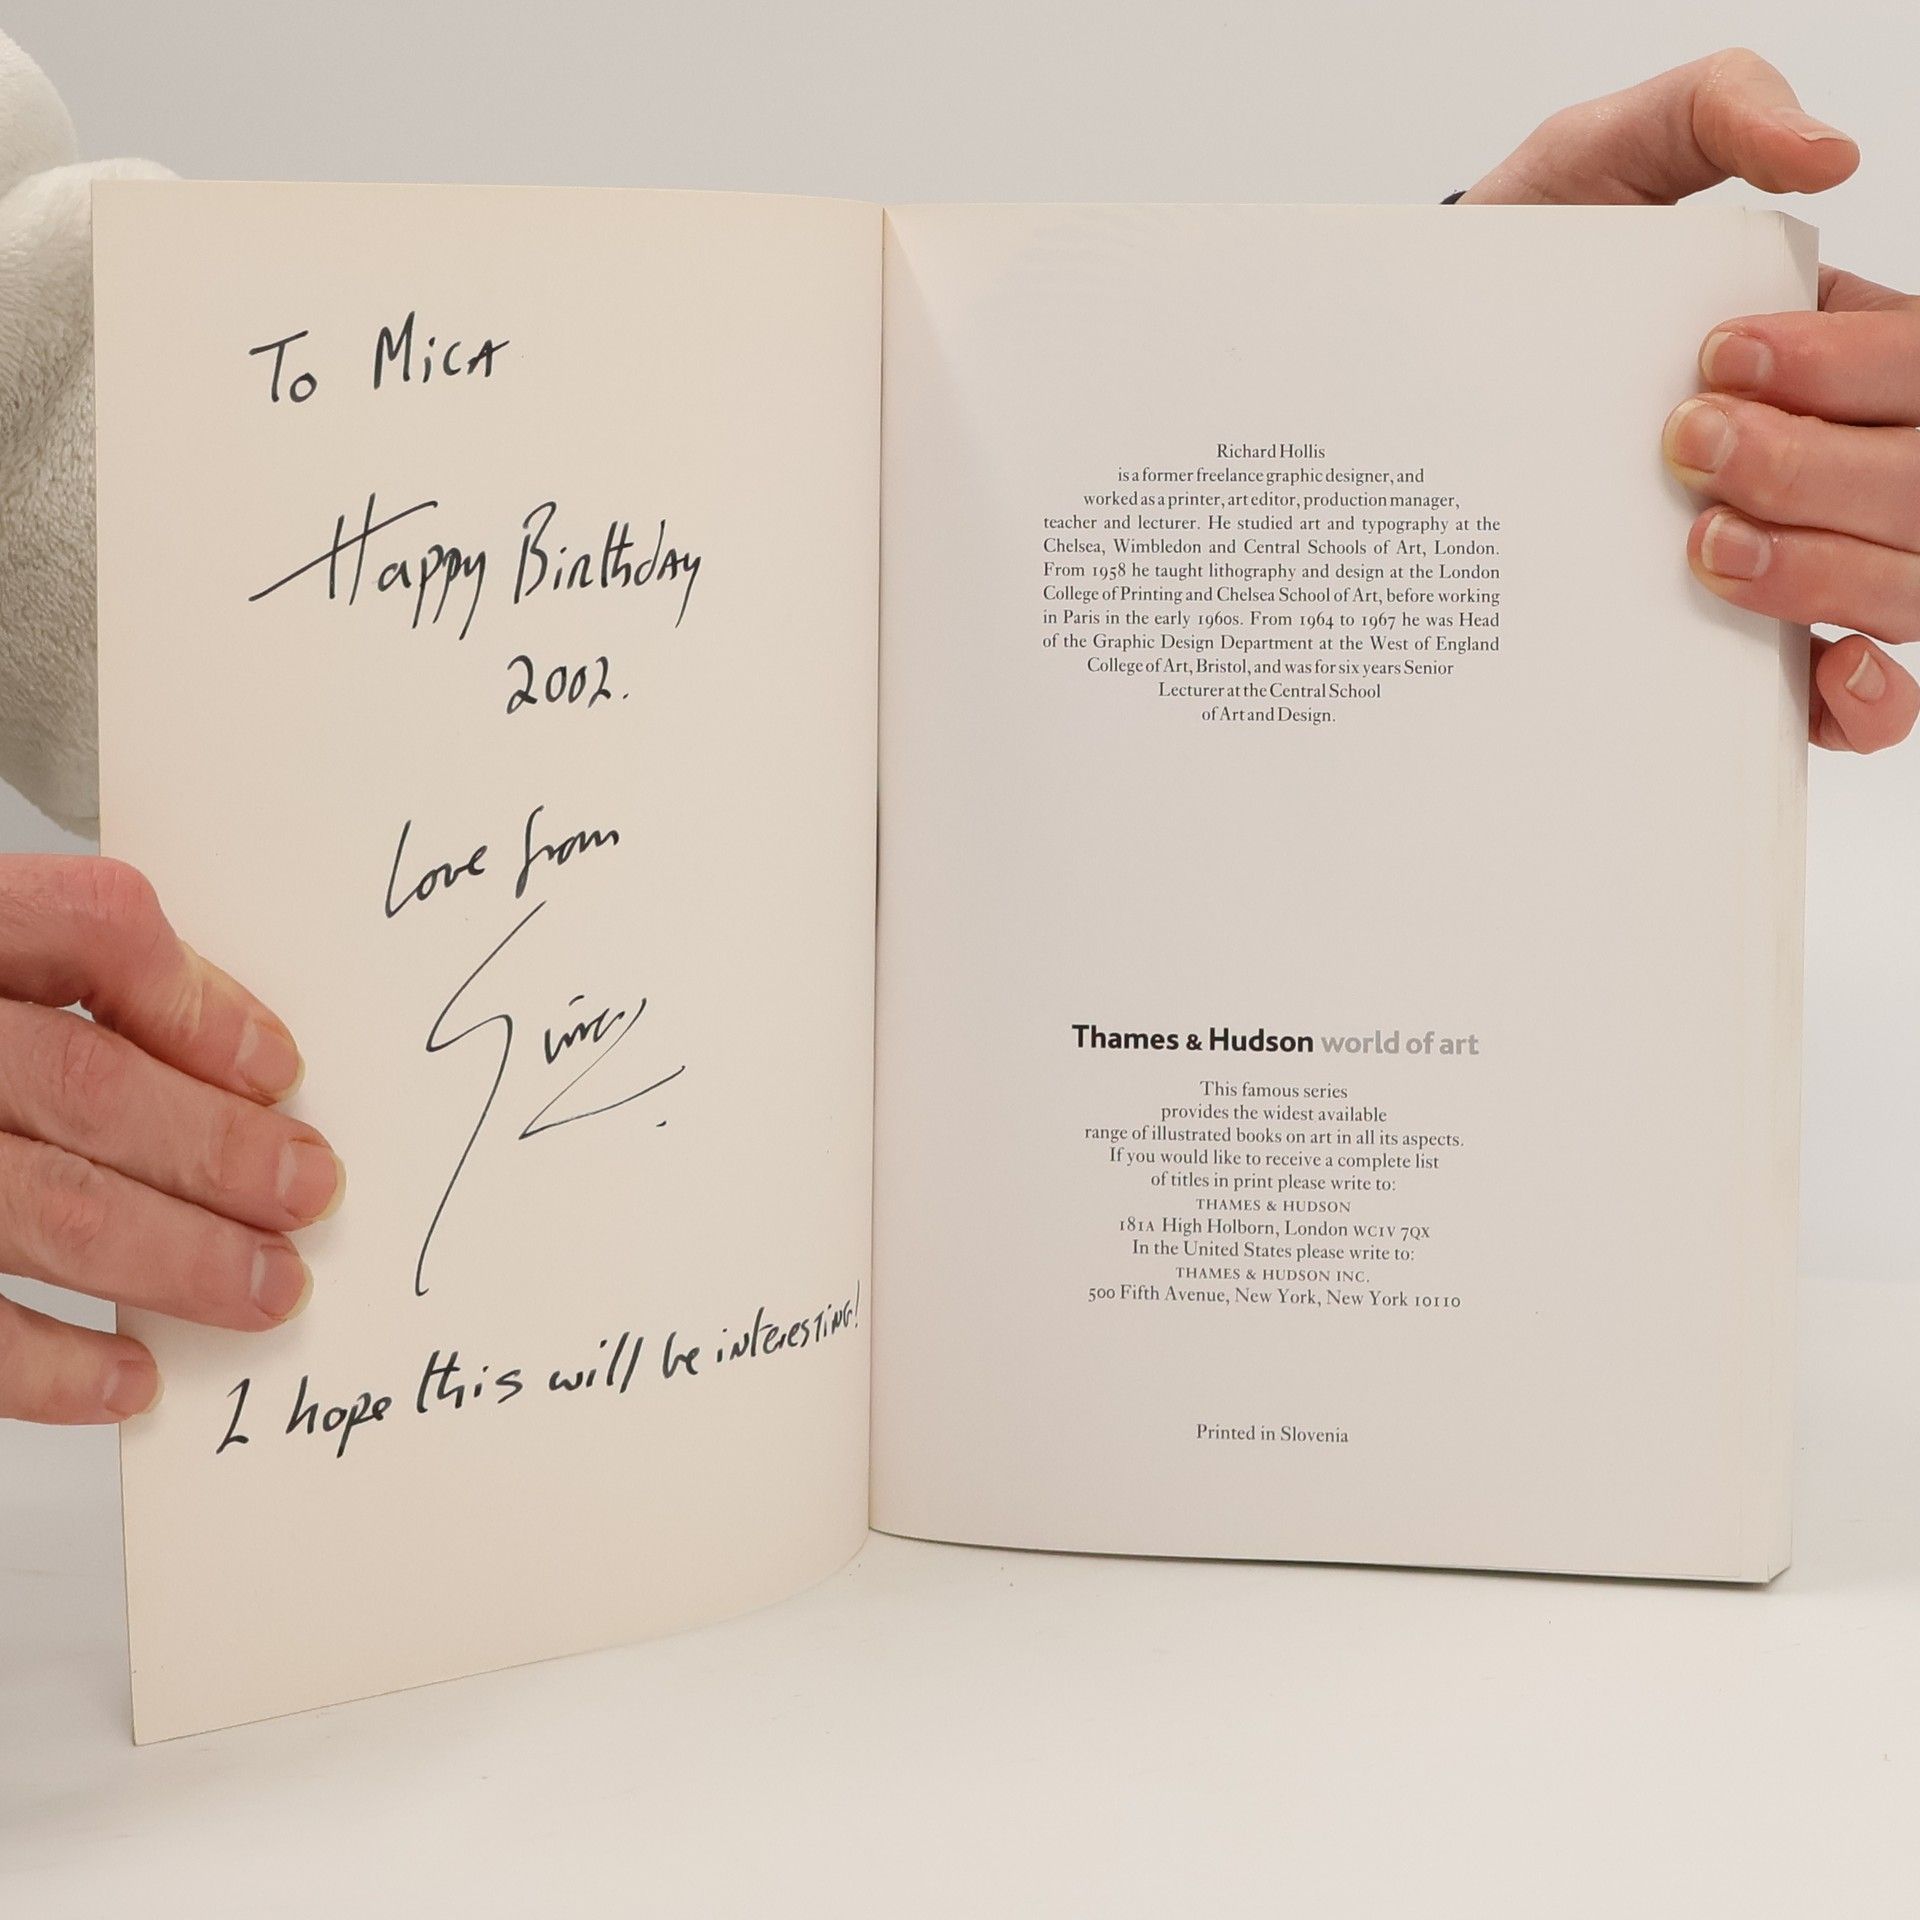 To Mica
Happy Birthday
2002.
Love from
I hope this will be interesting!
Richard Hollis
is a former freelance graphic designer, and
worked as a printer, art editor, production manager,
teacher and lecturer. He studied art and typography at the
Chelsea, Wimbledon and Central Schools of Art, London.
From 1958 he taught lithography and design at the London
College of Printing and Chelsea School of Art, before working
in Paris in the early 1960s. From 1964 to 1967 he was Head
of the Graphic Design Department at the West of England
College of Art, Bristol, and was for six years Senior
Lecturer at the Central School
of Art and Design.
Thames & Hudson world of art
This famous series
provides the widest available
range of illustrated books on art in all its aspects.
If you would like to receive a complete list
of titles in print please write to:
THAMES & HUDSON
181A High Holborn, London WC1V 7QX
In the United States please write to:
THAMES & HUDSON INC.
500 Fifth Avenue, New York, New York 10110
Printed in Slovenia